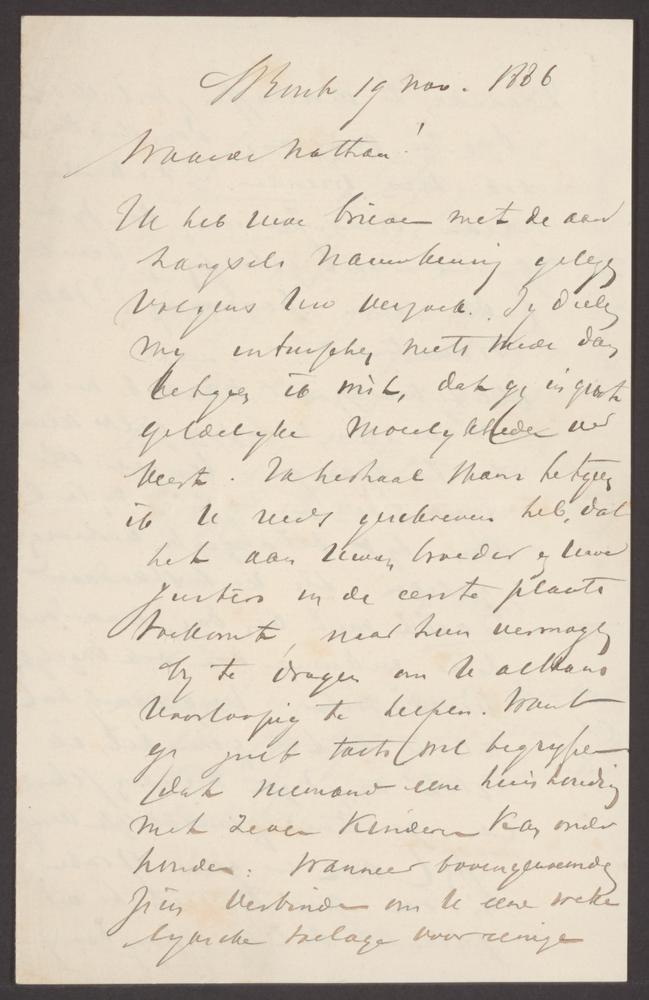 19 nov. 1886
Waarde Nathan!
Ik heb uwe brieven met de aan
hangsels nauwkeurig gelezen
volgens uw verzoek. Zy deelen
my niets meer dan
hetgeen ik wist, dat gy in groote
geldelyke moeylykheden ver
keert. Ik herhaal thans hetgeen
ik U reeds geschreven heb, dat
het aan Uwen broeder en Uwe
zusters in de eerste plaats
toekomt, naar hun vermogen
by te dragen om U althans
voorloopig te helpen. Want
gy zult toch wel begrypen
dat niemand eene huishouding
met zeven kinderen kan onder
houden. Wanneer bovengenoemden
zich verbinden om U eene weke
lyksche toelage voor eenige